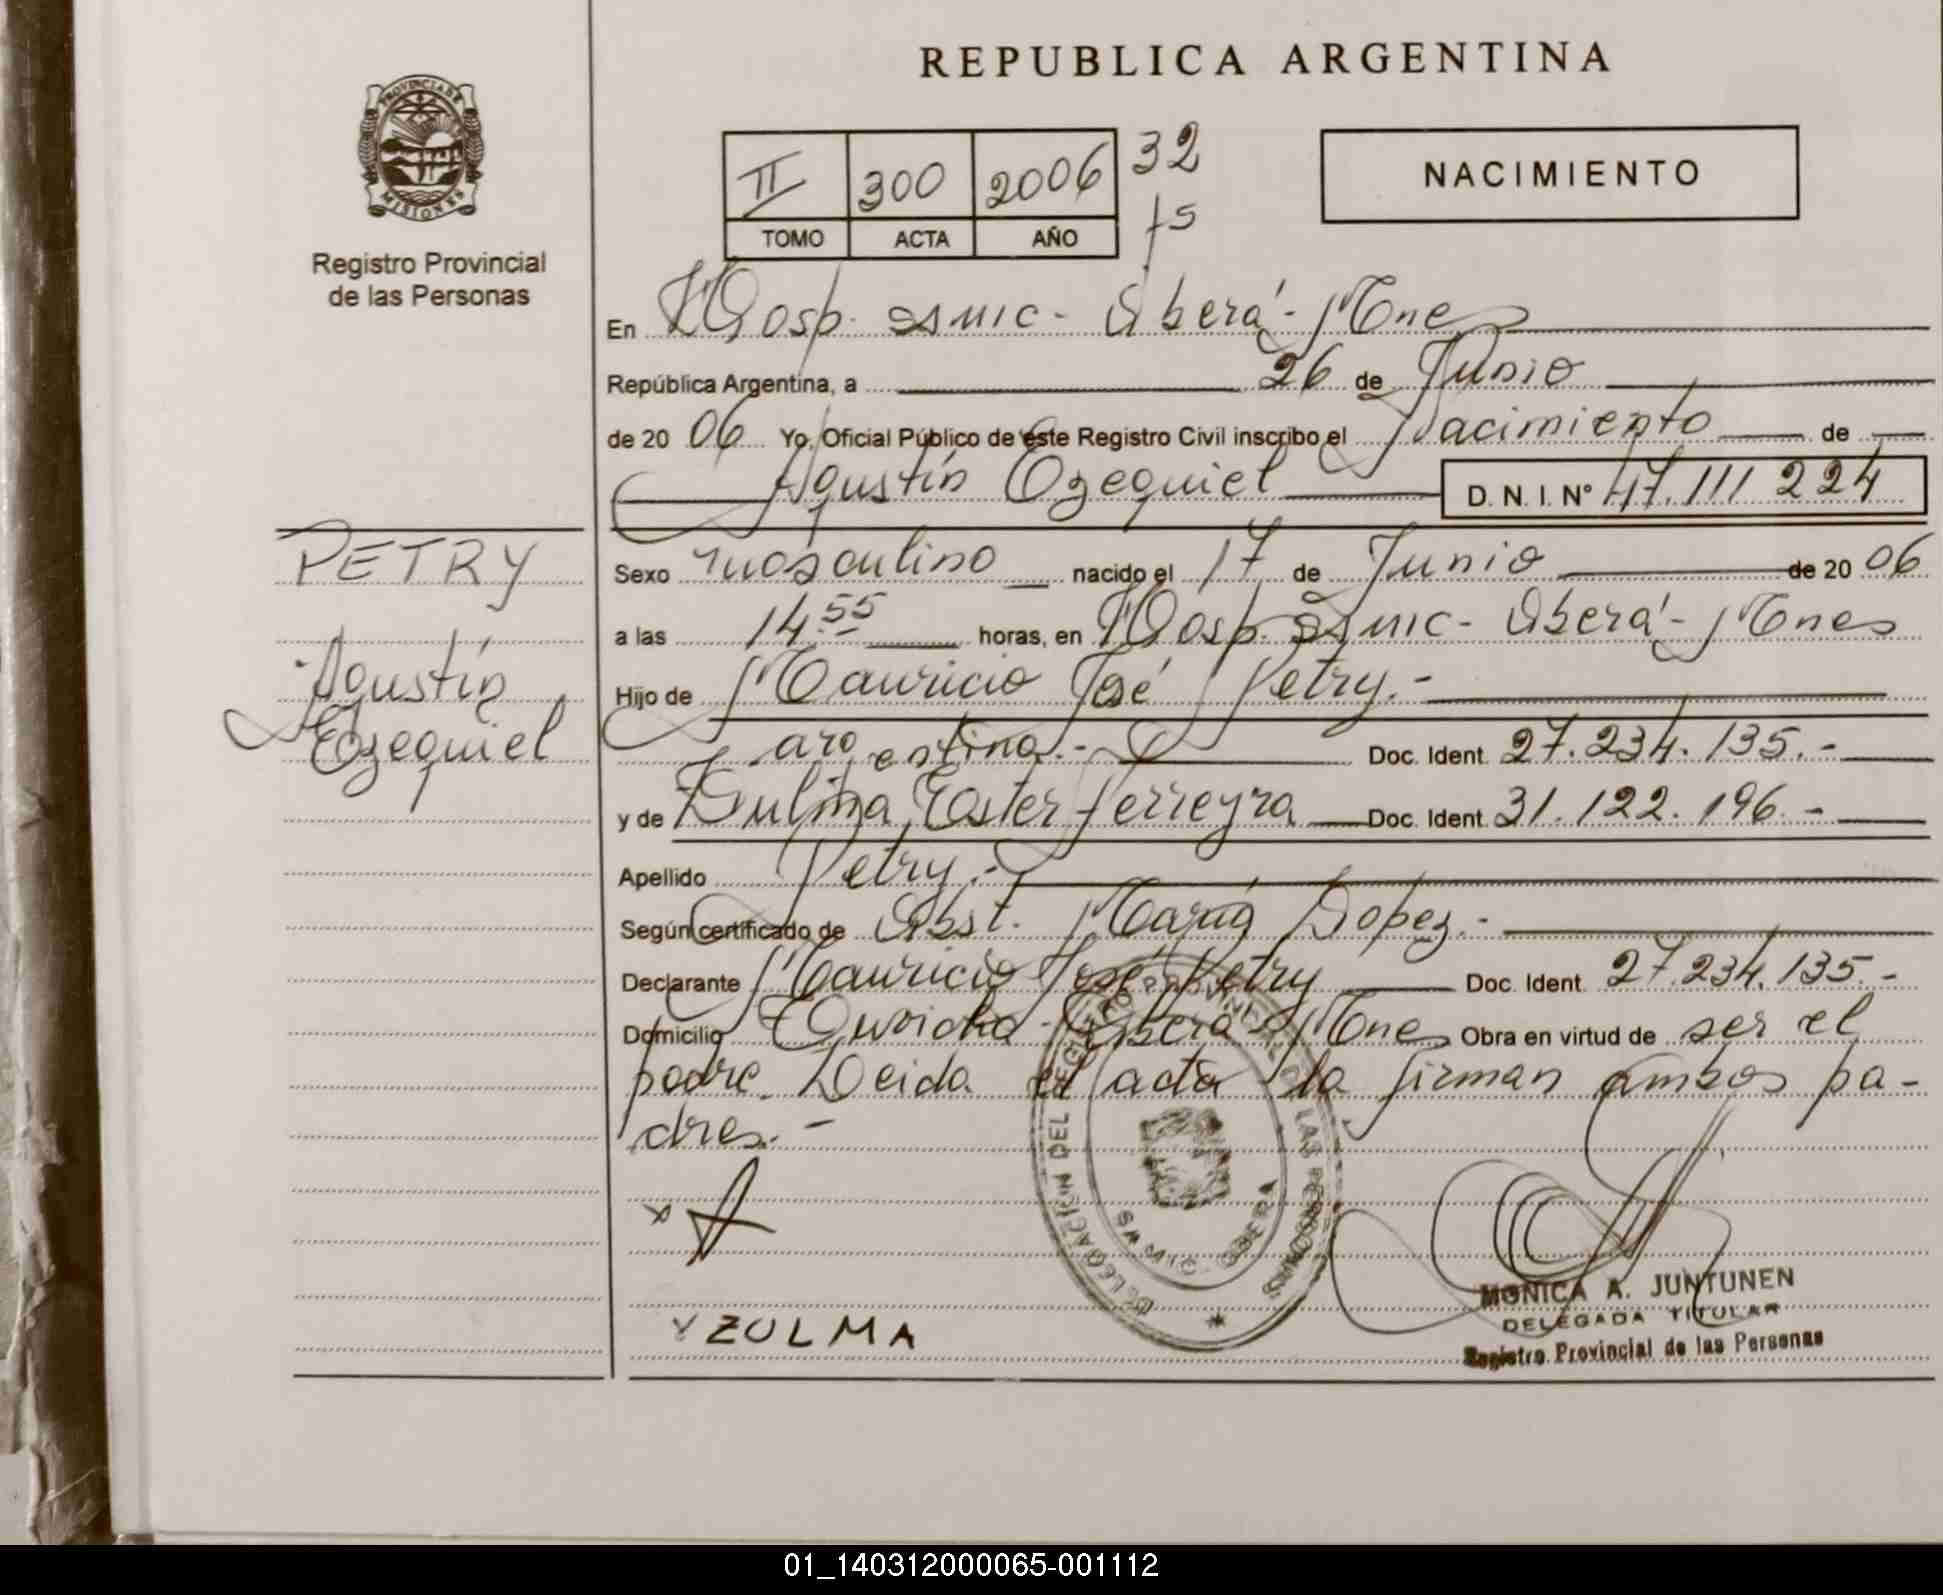 REPUBLICA ARGENTINA
PROVINCIA DE
MISIONES
Registro Provincial
de las Personas
II 300 2006 32
TOMO ACTA AÑO
NACIMIENTO
En Hosp. Samic - Oberá - Mnes
República Argentina, a 26 de Junio
de 20 06 Yo, Oficial Público de este Registro Civil inscribo el Nacimiento de
Agustín Ezequiel D. N. I. Nº 47.111.224
PETRY
Agustín
Ezequiel
Sexo masculino nacido el 17 de Junio de 20 06
a las 14.55 horas, en Hosp. Samic - Oberá - Mnes
Hijo de Mauricio José Petry.-
argentina.- Doc. Ident. 27.234.135.-
y de Ester Ferreyra Doc. Ident. 31.122.196.-
Apellido Petry.-
Según certificado de Obst. María Lopez.-
Declarante Mauricio José Petry Doc. Ident. 27.234.135.-
Domicilio Oberá Mnes Obra en virtud de ser el
padre. Leida el acta la firman ambos pa-
dres.-
x
ZULMA
DELEGACION DEL REGISTRO PROVINCIAL DE LAS PERSONAS
OBERA
MONICA A. JUNTUNEN
DELEGADA TITULAR
Registro Provincial de las Personas
01_140312000065-001112